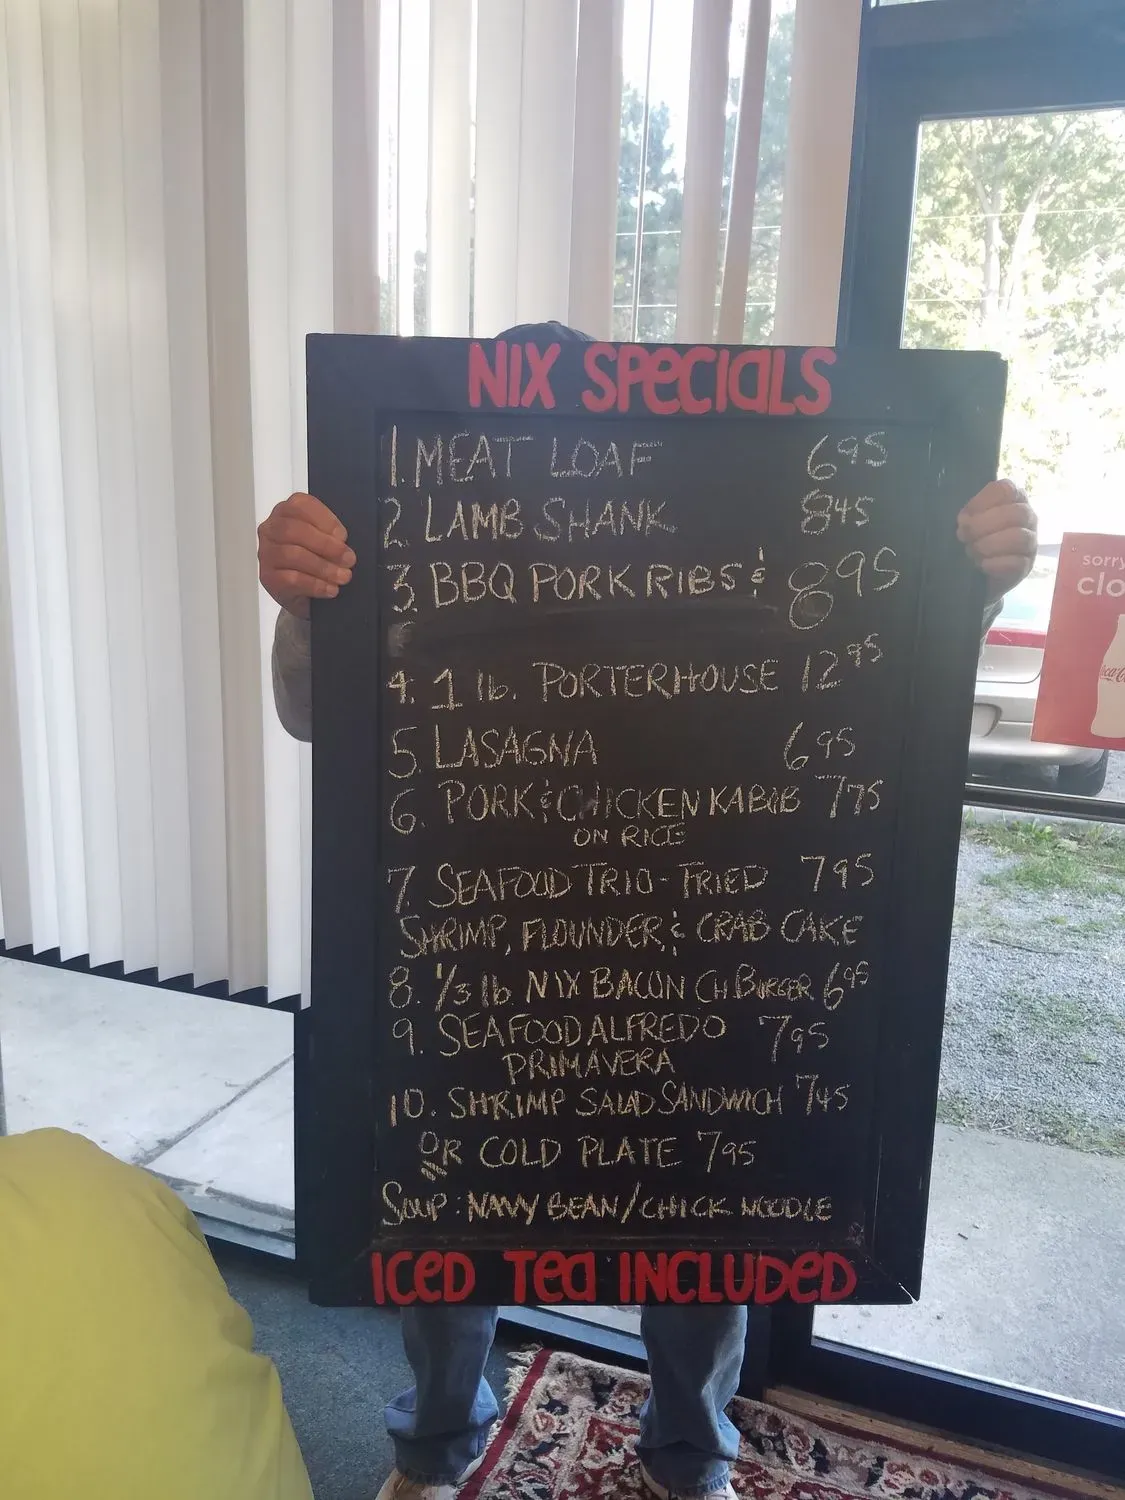 NIX SPECIALS
1. MEAT LOAF 6 95
2. LAMB SHANK 8 45
3. BBQ PORK RIBS & 8 95
4. 1 lb. PORTERHOUSE 12 95
5. LASAGNA 6 95
6. PORK & CHICKEN KABOB 7 75
ON RICE
7. SEAFOOD TRIO - FRIED 7 95
SHRIMP, FLOUNDER, & CRAB CAKE
8. 1/3 lb NIX BACON CH BURGER 6 95
9. SEAFOOD ALFREDO 7 95
PRIMAVERA
10. SHRIMP SALAD SANDWICH 7 45
OR COLD PLATE 7 95
SOUP: NAVY BEAN/CHICK NOODLE
ICED TEA INCLUDED
sorry